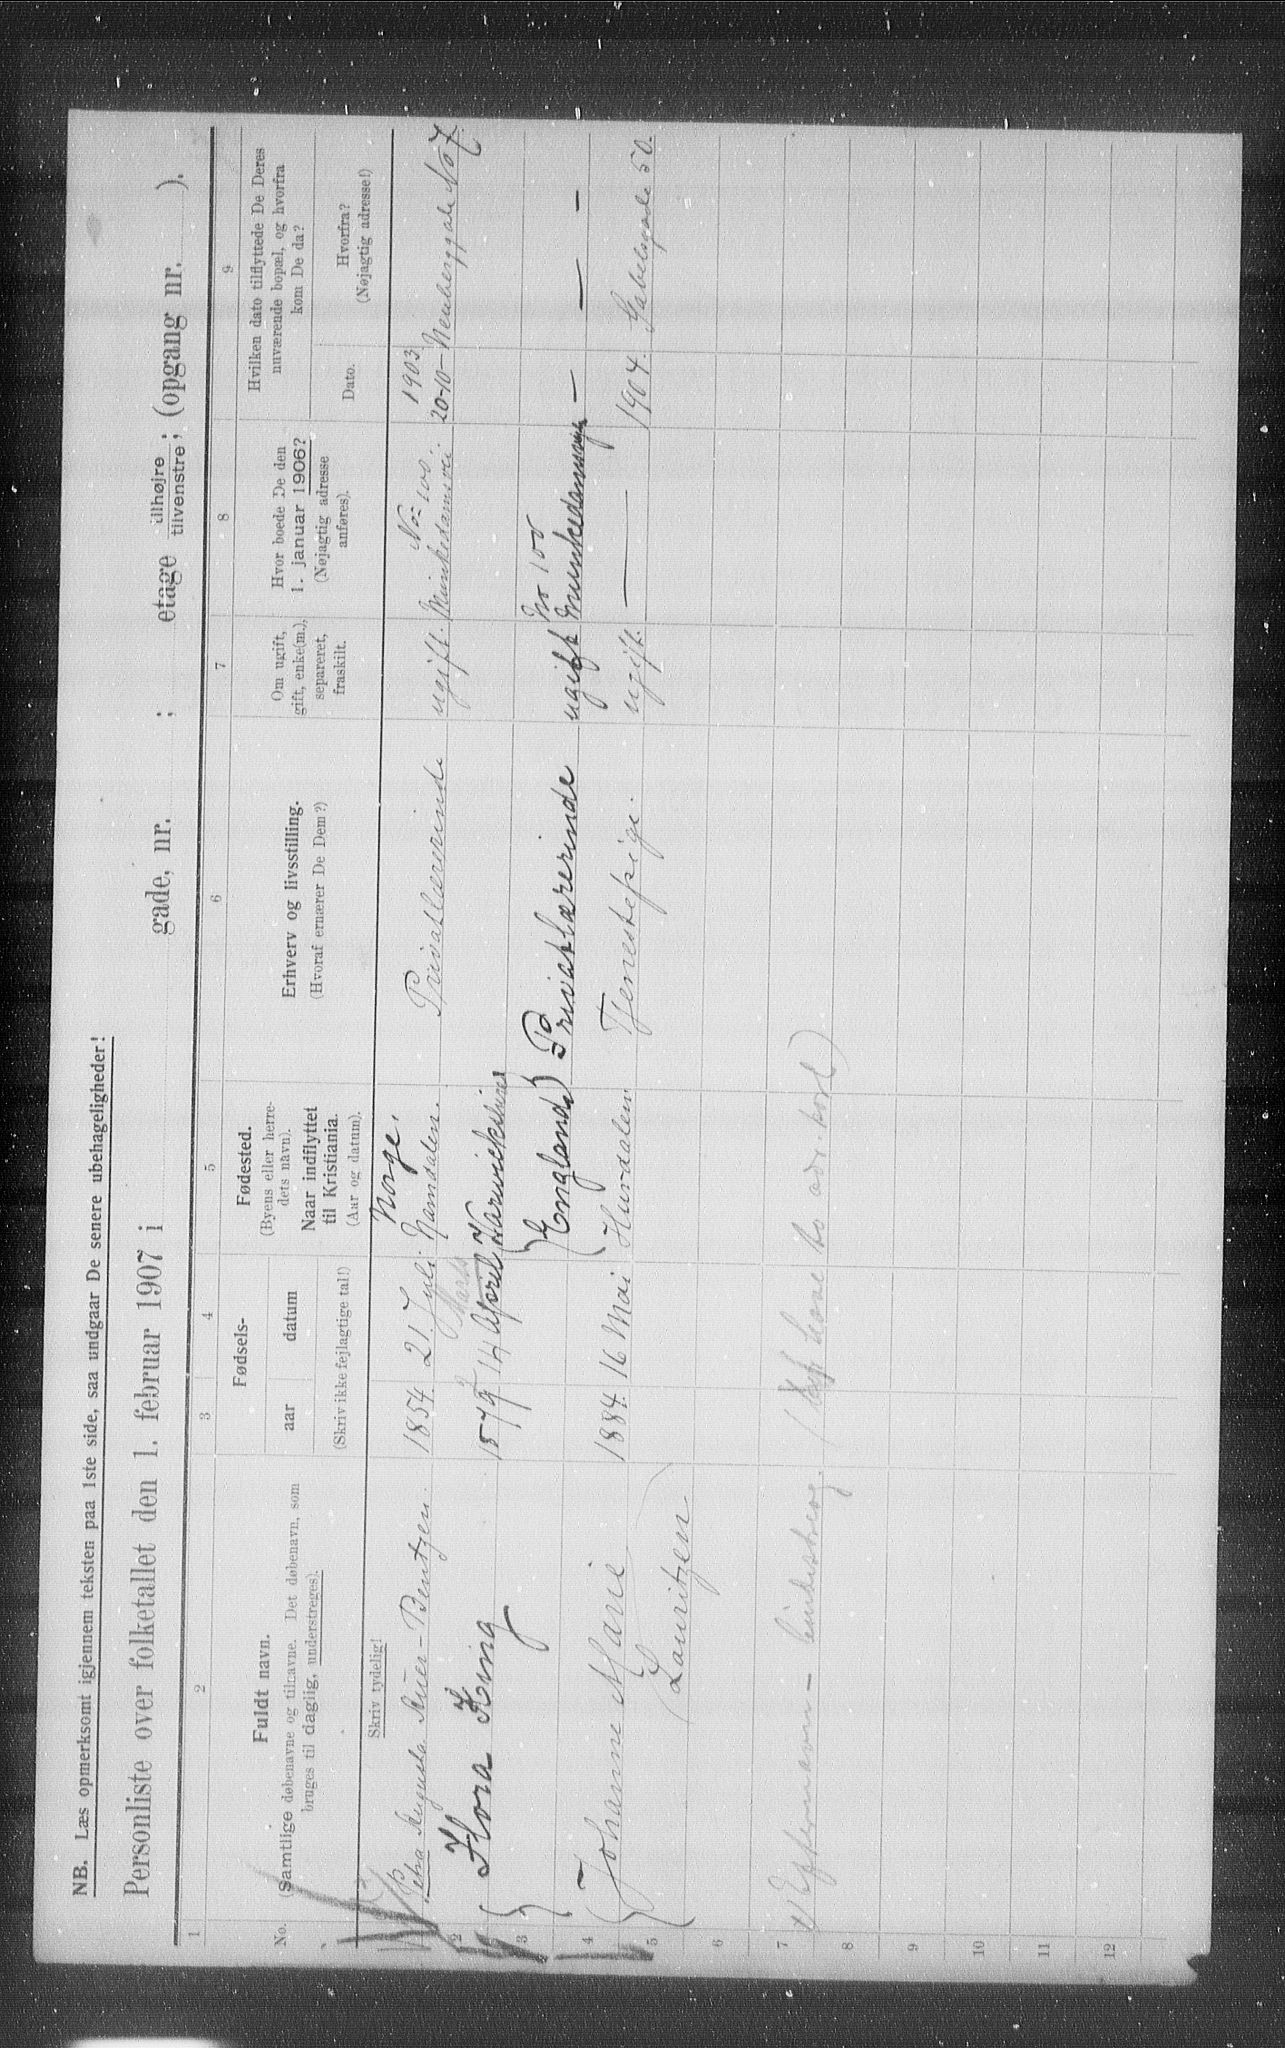 NB. Læs opmerksomt igjennem teksten paa 1ste side, saa undgaar De senere ubehageligheder!
Personliste over folketallet den 1. februar 1907 i gade, nr. ; etage tilhøjre tilvenstre ; (opgang nr. ).
1 2 3 4 5 6 7 8 9
No.
Fuldt navn.
(Samtlige døbenavne og tilnavne. Det døbenavn, som
bruges til daglig, understreges).
Skriv tydelig!
Fødsels-
aar datum
(Skriv ikke fejlagtige tal!)
Fødested.
(Byens eller herre-
dets navn).
Naar indflyttet
til Kristiania.
(Aar og datum).
Erhverv og livsstilling.
(Hvoraf ernærer De Dem?)
Om ugift,
gift, enke(m.),
separeret,
fraskilt.
Hvor boede De den
1. januar 1906?
(Nøjagtig adresse
anføres).
Hvilken dato tilflyttede De Deres
nuværende bopæl, og hvorfra
kom De da?
Dato.
Hvorfra?
(Nøjagtig adresse!)
Norge. No 100. 1903
Petra Augusta -Bentzen. 1854. 21 Juli. Namdalen. Privatlærerinde ugift. Munkedamsvei 20-10- Neuberggade No 7
2 Marts
Flora King 1879 14 April Warwickshire
3 No 100
(England) Privatlærerinde ugift Munkedamsvej — — —
4 Johanne Marie 1884. 16 Mai Hurdalen Tjenestepige. ugift. — — 1904. Gabelsgade 50.
5 (Lauritzen)
6
7 Efternavn —
8
9
10
11
12